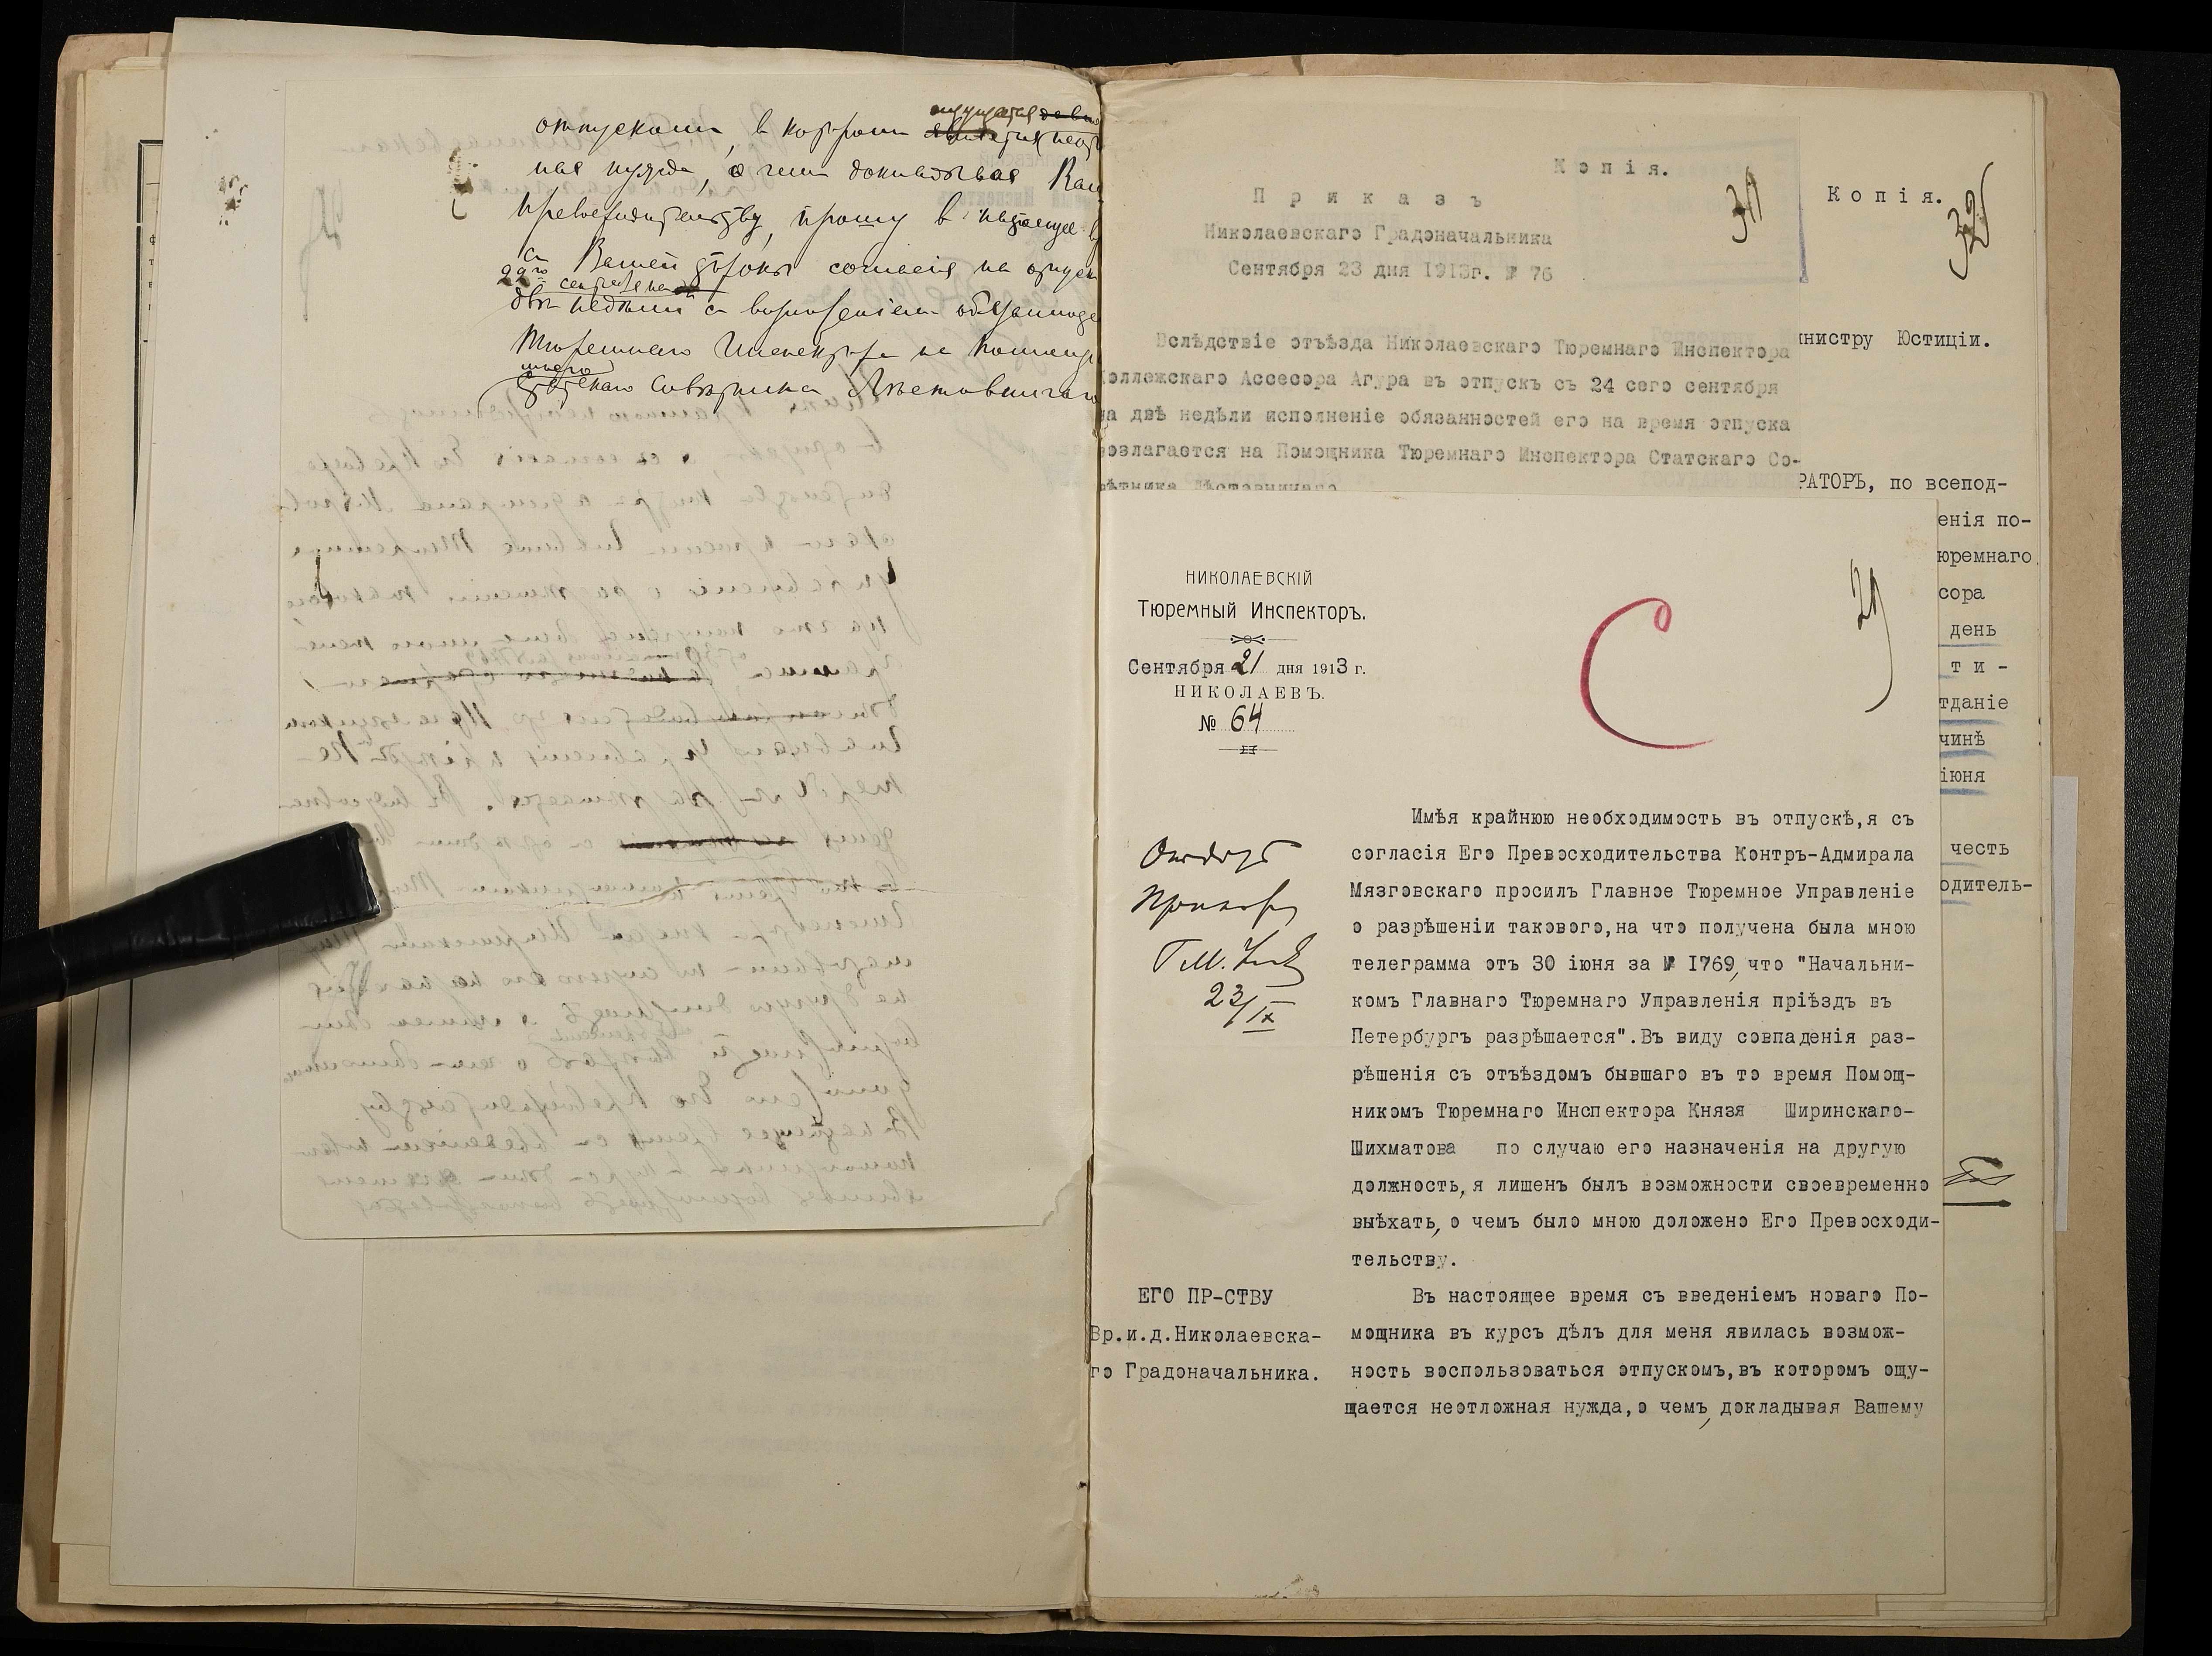 отпускомъ, въ которомъ
ощущается
ная нужда, о чемъ докладывая
Превосходительству, прошу въ
съ Вашей стороны согласія на отпускъ
сентября на
двѣ недѣли съ возложеніемъ
Тюремнаго Инспектора на
Статскаго Совѣтника
Копія.
31
Приказъ
Николаевскаго Градоначальника
Сентября 23 дня 1913г. № 76
Вслѣдствіе отъѣзда Николаевскаго Тюремнаго Инспектора
оллежскаго Ассесора Агура въ отпускъ съ 24 сего сентября
на двѣ недѣли исполненіе обязанностей его на время отпуска
возлагается на Помощника Тюремнаго Инспектора Статскаго Со-
Копія.
32
инистру Юстиціи.
РАТОРЪ, по всепод-
енія по-
юремнаго
сора
день
ти-
тданіе
чинѣ
іюня
честь
одитель-
НИКОЛАЕВСКІЙ
Тюремный Инспекторъ.
Сентября 21 дня 1913 г.
НИКОЛАЕВЪ.
№ 64
С
29
23/IX
Имѣя крайнюю необходимость въ отпускѣ,я съ
согласія Его Превосходительства Контръ-Адмирала
Мязговскаго просилъ Главное Тюремное Управленіе
о разрѣшеніи такового,на что получена была мною
телеграмма отъ 30 іюня за № 1769,что "Начальни-
комъ Главнаго Тюремнаго Управленія пріѣздъ въ
Петербургъ разрѣшается".Въ виду совпаденія раз-
рѣшенія съ отъѣздомъ бывшаго въ то время Помощ-
никомъ Тюремнаго Инспектора Князя Ширинскаго-
Шихматова по случаю его назначенія на другую
должность,я лишенъ былъ возможности своевременно
выѣхать,о чемъ было мною доложено Его Превосходи-
тельству.
Въ настоящее время съ введеніемъ новаго По-
мощника въ курсъ дѣлъ для меня явилась возмож-
ность воспользоваться отпускомъ,въ которомъ ощу-
щается неотложная нужда,о чемъ,докладывая Вашему
ЕГО ПР-СТВУ
Вр.и.д.Николаевска-
го Градоначальника.